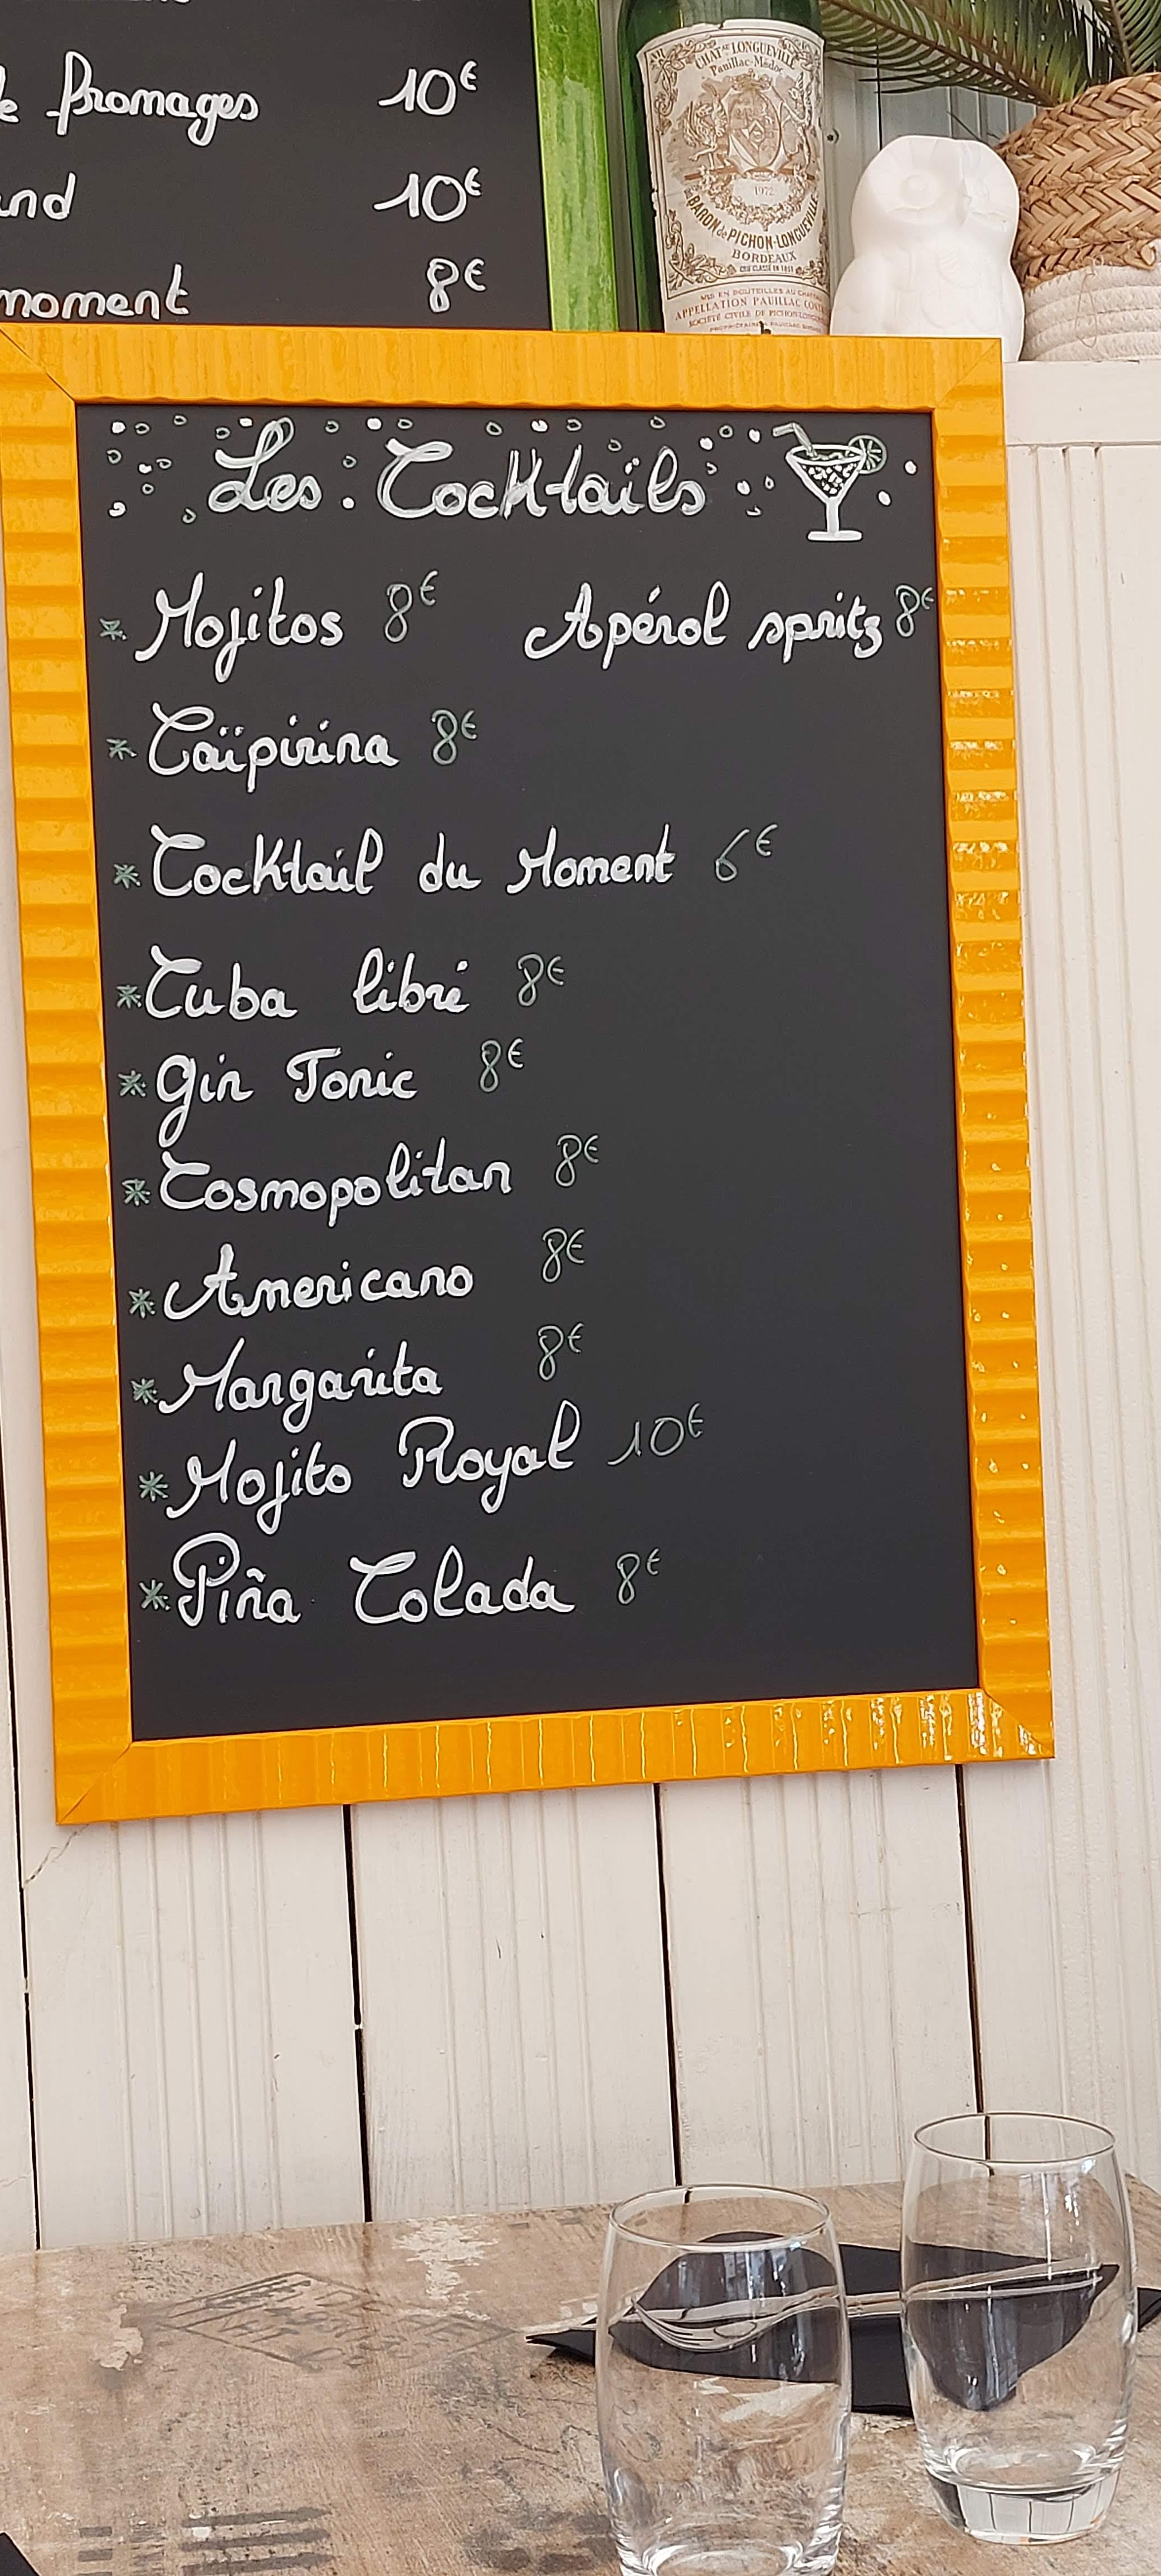 fromages 10€
10€
moment 8€
CHATEAU LONGUEVILLE
Pauillac-Médoc
1972
BARON de PICHON-LONGUEVILLE
BORDEAUX
MIS EN BOUTEILLES AU
APPELLATION PAUILLAC
SOCIÉTÉ CIVILE DE PICHON
Les Cocktaïls
* Mojitos 8€ Apérol spritz 8€
* Caïpirina 8€
* Cocktail du Moment 6€
* Cuba libré 8€
* Gin Tonic 8€
* Cosmopolitan 8€
* Americano 8€
* Margarita 8€
* Mojito Royal 10€
* Piña Colada 8€